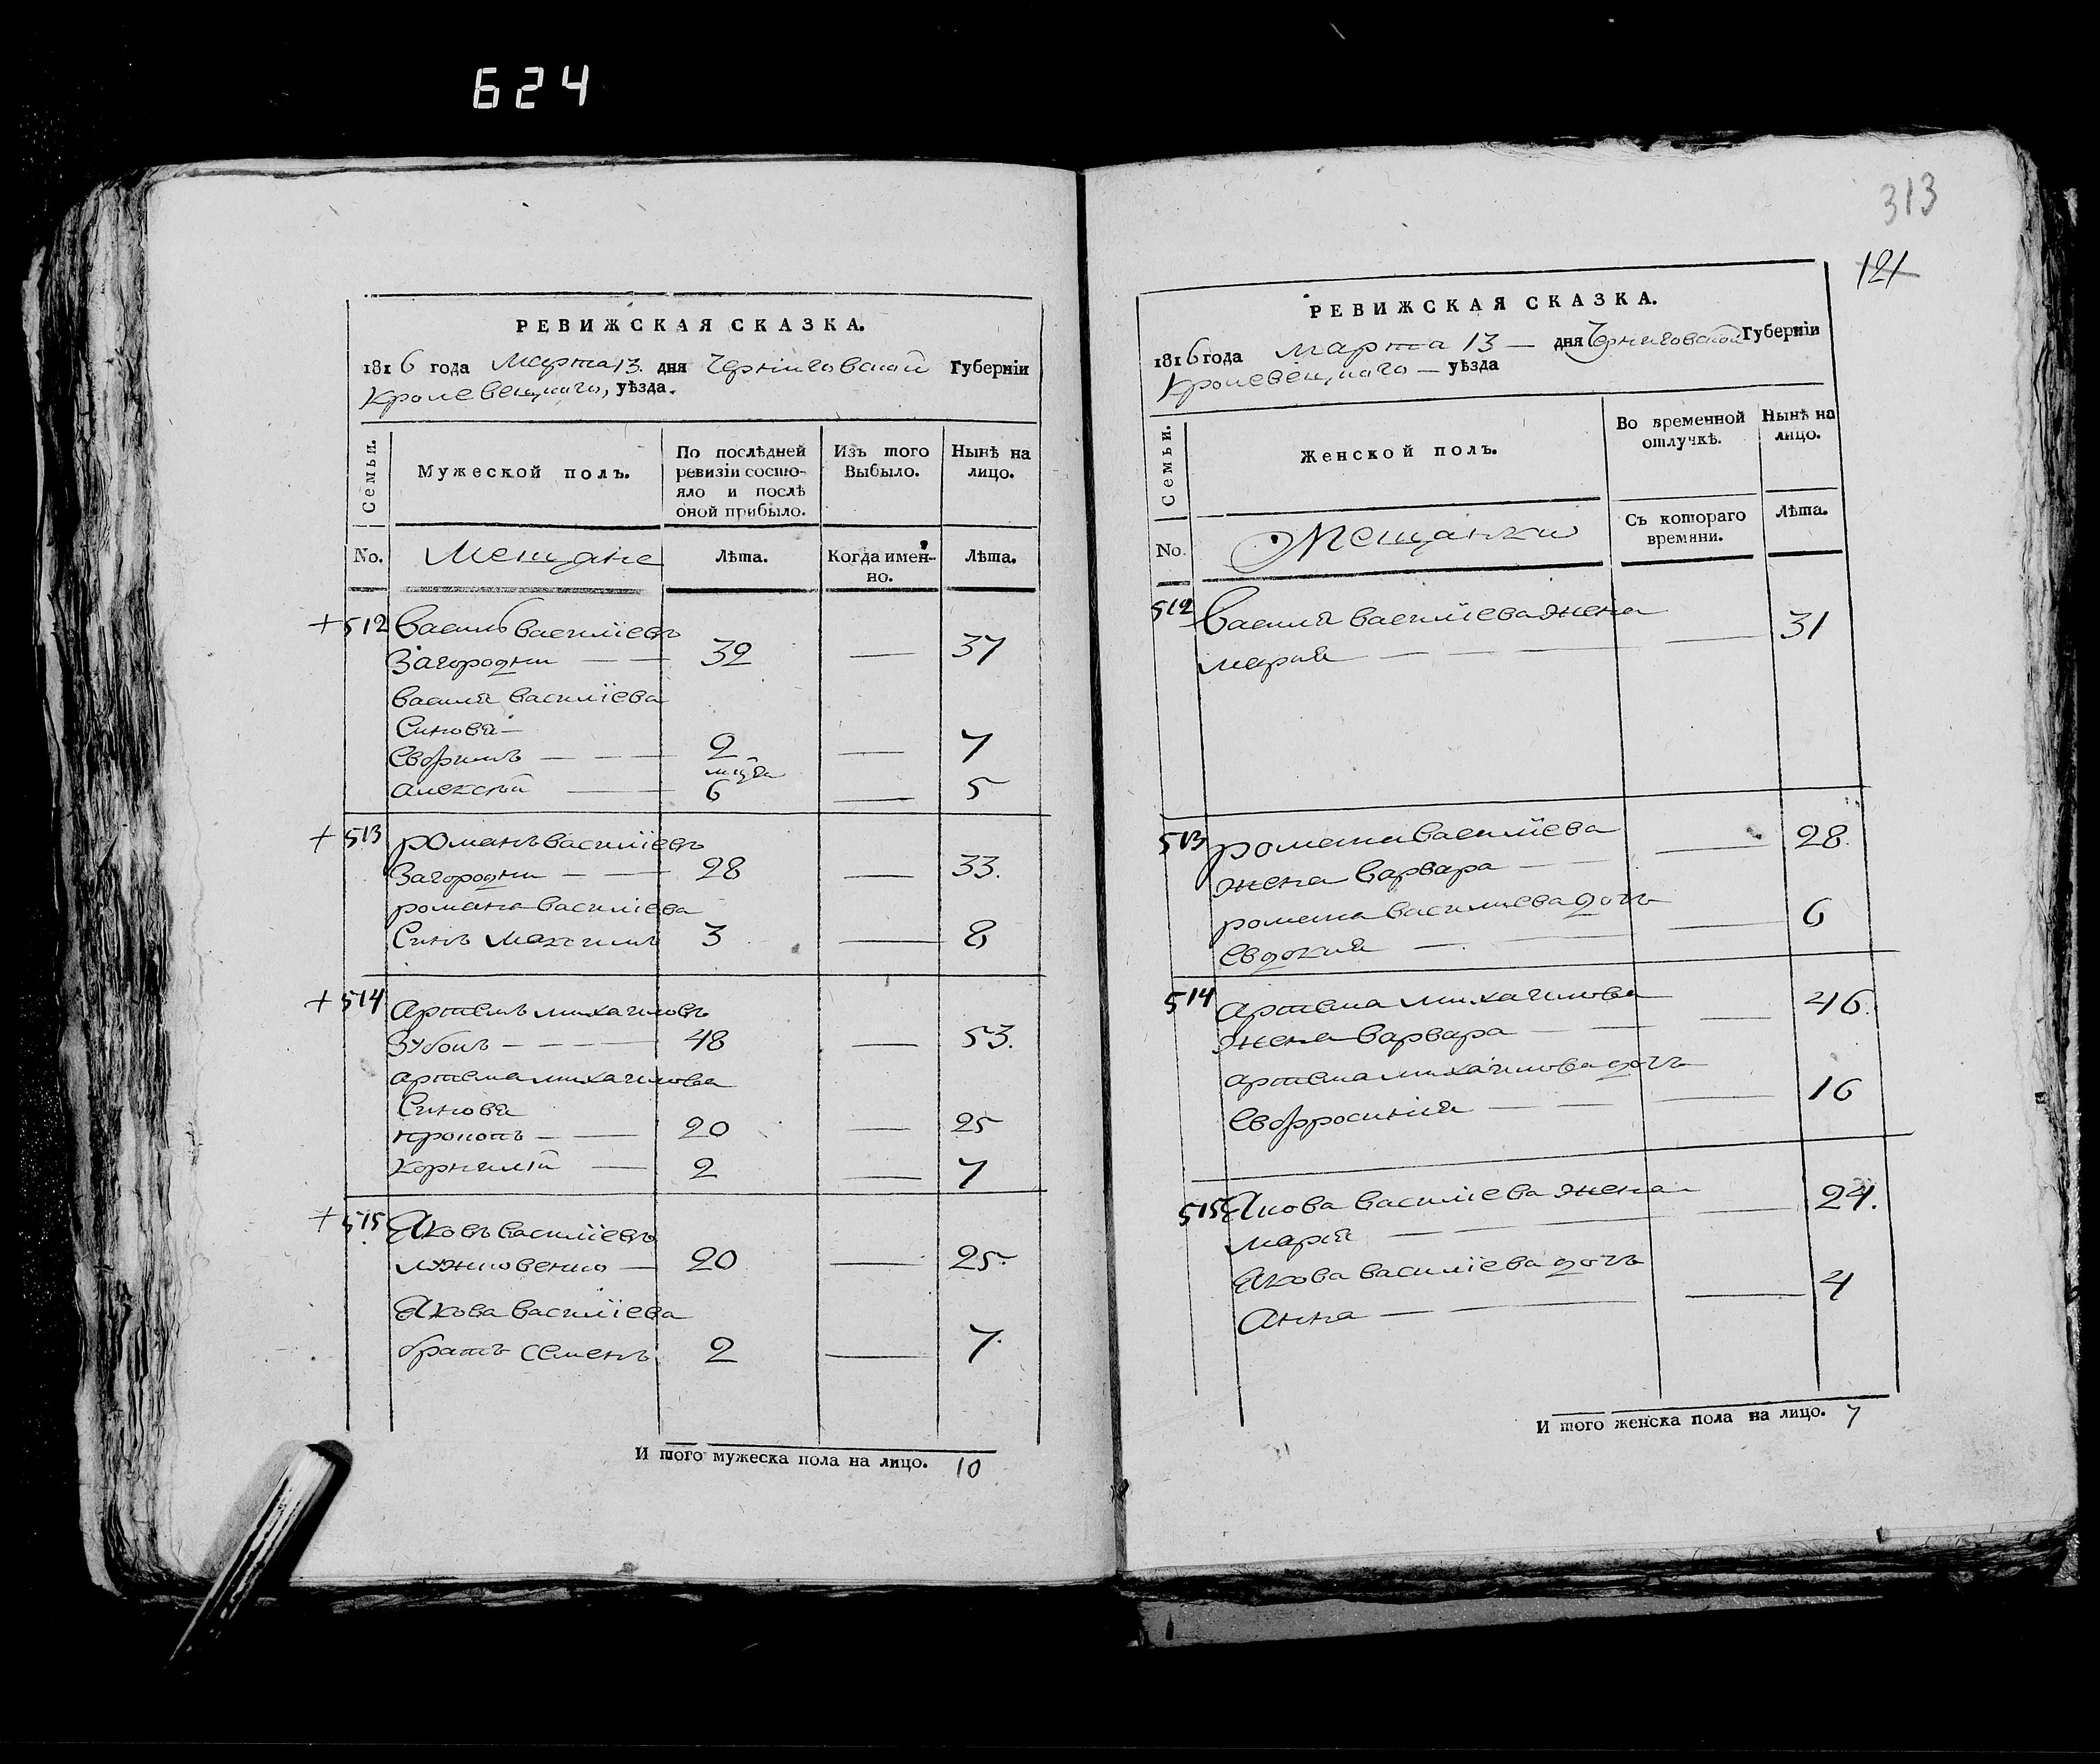 624
РЕВИЖСКАЯ СКАЗКА.
1816 года Марта 13. дня Черниговской Губерніи
Кролевецкого, уѣзда.
Семьи.
Мужеской полъ.
По послѣдней ревизіи состо-
яло и послѣ оной прибыло.
Изъ того Выбыло.
Нынѣ на лицо.
No.
Мещане
Лѣта.
Когда имен-
но.
Лѣта.
+ 512 Василь Василіевъ
Загородни — — 32 — 37
Василя Василіева
Синовя —
Евфимъ — — — 2 — 7
мця
Алексѣй — 6 — 5
+ 513 Романъ Василіевъ
Загородни — — 28 — 33.
Романа Василіева
Синъ Максимъ 3 — 8
+ 514 Артемъ Михаиловъ
— — — 48 — 53.
Артема Михаилова
Синовя
Прокопъ — — 20 — 25
Корнилій — 2 — 7
+ 515 Яковъ Василіевъ
— 20 — 25.
Якова Василіева
братъ Семенъ 2 — 7.
И того мужеска пола на лицо. 10
313
121
РЕВИЖСКАЯ СКАЗКА.
1816 года Марта 13 — дня Черниговской Губерніи
Кролевецкого — уѣзда
Семьи.
Женской полъ.
Во временной отлучкѣ.
Нынѣ на лицо.
No.
Мещанки
Съ котораго времяни.
Лѣта.
512 Василя Василіева жена
Марія — — — — 31
513 Романа Василіева
жена Варвара — — — 28.
Романа Василиева дочъ
Евдокия — — — 6
514 Артема Михаилова
жена Варвара — — — 46.
Артема Михаилова дочъ
Евфросиния — — — 16
515 Якова Василіева жена
Марія — — — 24.
Якова Василіева дочъ
Анна — — — 4
И того женска пола на лицо. 7